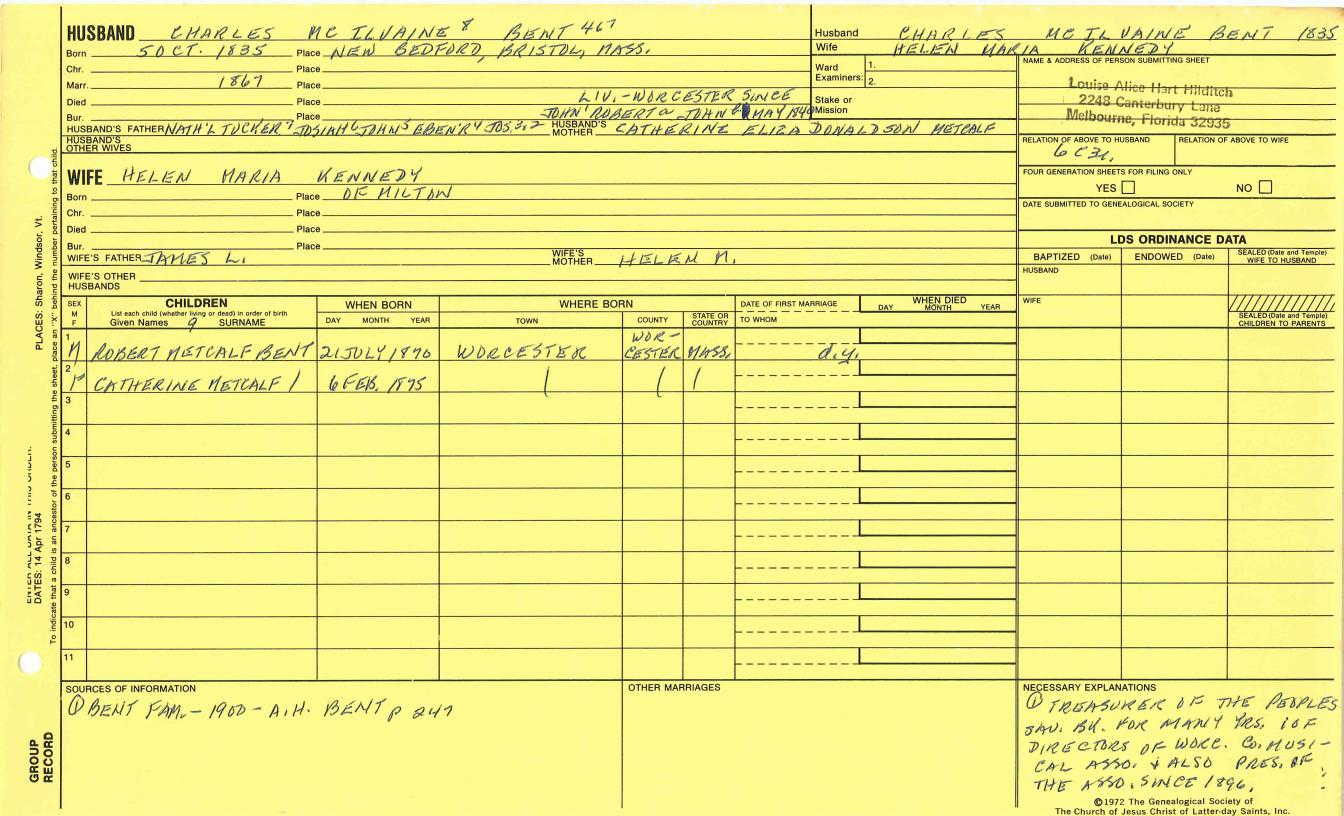 HUSBAND CHARLES MC ILVAINE 8 BENT 467
Born 5 OCT. 1835 Place NEW BEDFORD, BRISTOL, MASS.
Chr. Place
Marr. 1867 Place
Died Place LIV.-WORCESTER SINCE
Bur. Place MAY 184
HUSBAND'S FATHER NATH'L TUCKER 7 JOSIAH 6 JOHN 5 EBEN'R 4 JOS 3, 2 JOHN 1 ROBERT a JOHN
HUSBAND'S MOTHER CATHERINE ELIZA DONALDSON METCALF
HUSBAND'S OTHER WIVES
WIFE HELEN MARIA KENNEDY
Born Place OF MILTON
Chr. Place
Died Place
Bur. Place
WIFE'S FATHER JAMES L. WIFE'S MOTHER HELEN M.
WIFE'S OTHER HUSBANDS
Husband CHARLES MC ILVAINE BENT 1835
Wife HELEN MARIA KENNEDY
Ward Examiners: 1.
2.
Stake or Mission
NAME & ADDRESS OF PERSON SUBMITTING SHEET
Louise Alice Hart Hilditch
2248 Canterbury Lane
Melbourne, Florida 32935
RELATION OF ABOVE TO HUSBAND RELATION OF ABOVE TO WIFE
6 C
FOUR GENERATION SHEETS FOR FILING ONLY
YES NO
DATE SUBMITTED TO GENEALOGICAL SOCIETY
LDS ORDINANCE DATA
BAPTIZED (Date) ENDOWED (Date) SEALED (Date and Temple) WIFE TO HUSBAND
HUSBAND
WIFE
SEALED (Date and Temple) CHILDREN TO PARENTS
SEX M F
CHILDREN
List each child (whether living or dead) in order of birth
Given Names 9 SURNAME
WHEN BORN
DAY MONTH YEAR
WHERE BORN
TOWN COUNTY STATE OR COUNTRY
DATE OF FIRST MARRIAGE
TO WHOM
WHEN DIED
DAY MONTH YEAR
1 M ROBERT METCALF BENT 21 JULY 1870 WORCESTER WOR-CESTER MASS. d.y.
2 F CATHERINE METCALF / 6 FEB. 1875 ( ( (
3
4
5
6
7
8
9
10
11
SOURCES OF INFORMATION
① BENT FAM.- 1900 - A.H. BENT p 247
OTHER MARRIAGES
NECESSARY EXPLANATIONS
① TREASURER OF THE PEOPLES
SAV. BK. FOR MANY YRS. 1 OF
DIRECTORS OF WORC. CO. MUSI-
CAL ASSO. & ALSO PRES. OF
THE ASSO. SINCE 1896.
©1972 The Genealogical Society of
The Church of Jesus Christ of Latter-day Saints, Inc.
PLACES: Sharon, Windsor, Vt.
ENTER ALL DATA IN THIS ORDER:
DATES: 14 Apr 1794
To indicate that a child is an ancestor of the person submitting the sheet, place an "X" behind the number pertaining to that child.
GROUP
RECORD